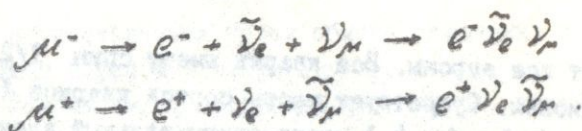 μ⁻ → e⁻ + ν̃ₑ + ν_μ → e⁻ ν̃ₑ ν_μ
μ⁺ → e⁺ + νₑ + ν̃_μ → e⁺ νₑ ν̃_μ